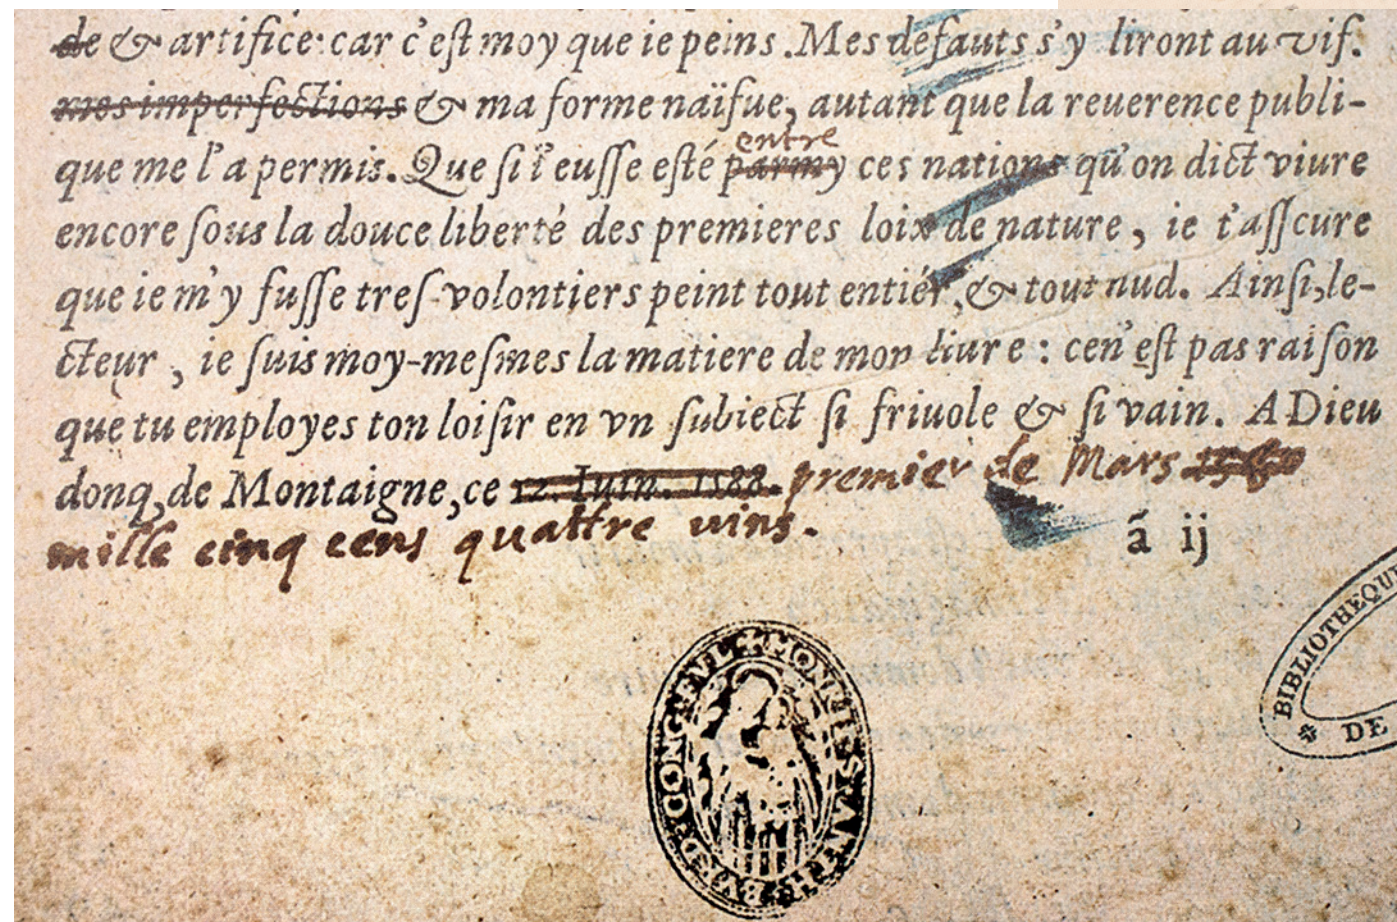 de & artifice: car c'eſt moy que ie peins. Mes defauts s'y liront au vif.
mes imperfections & ma forme naïfue, autant que la reuerence publi-
entre
que me l'a permis. Que ſi i'euſſe eſté parmy ces nations qu'on dict viure
encore ſous la douce liberté des premieres loix de nature, ie t'aſſeure
que ie m'y fuſſe treſ-volontiers peint tout entiér, & tout nud. Ainſi, le-
cteur, ie ſuis moy-meſmes la matiere de mon liure: ce n'eſt pas raiſon
que tu employes ton loiſir en vn ſubiect ſi friuole & ſi vain. A Dieu
donq, de Montaigne, ce 12. Iuin. 1588. premier de Mars 1580
mille cinq cens quattre vins.
ã ij
BIBLIOTHEQUE
DE